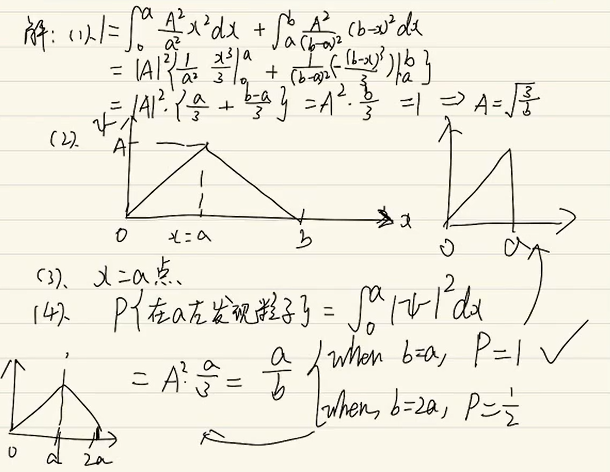 解: (1). 1 = ∫₀ᵃ A²/a² x² dx + ∫ₐᵇ A²/(b-a)² (b-x)² dx
= |A|² { 1/a² x³/3 |₀ᵃ + 1/(b-a)² (-(b-x)³/3) |ₐᵇ }
= |A|² · { a/3 + b-a/3 } = A² · b/3 = 1 ⇒ A = √(3/b)
(2). ψ
A
0 x=a b x
0 a
(3). x=a点.
(4). P{在a左发现粒子} = ∫₀ᵃ |ψ|² dx
= A² · a/3 = a/b { when b=a, P=1 ✓
when, b=2a, P=1/2
0 a 2a